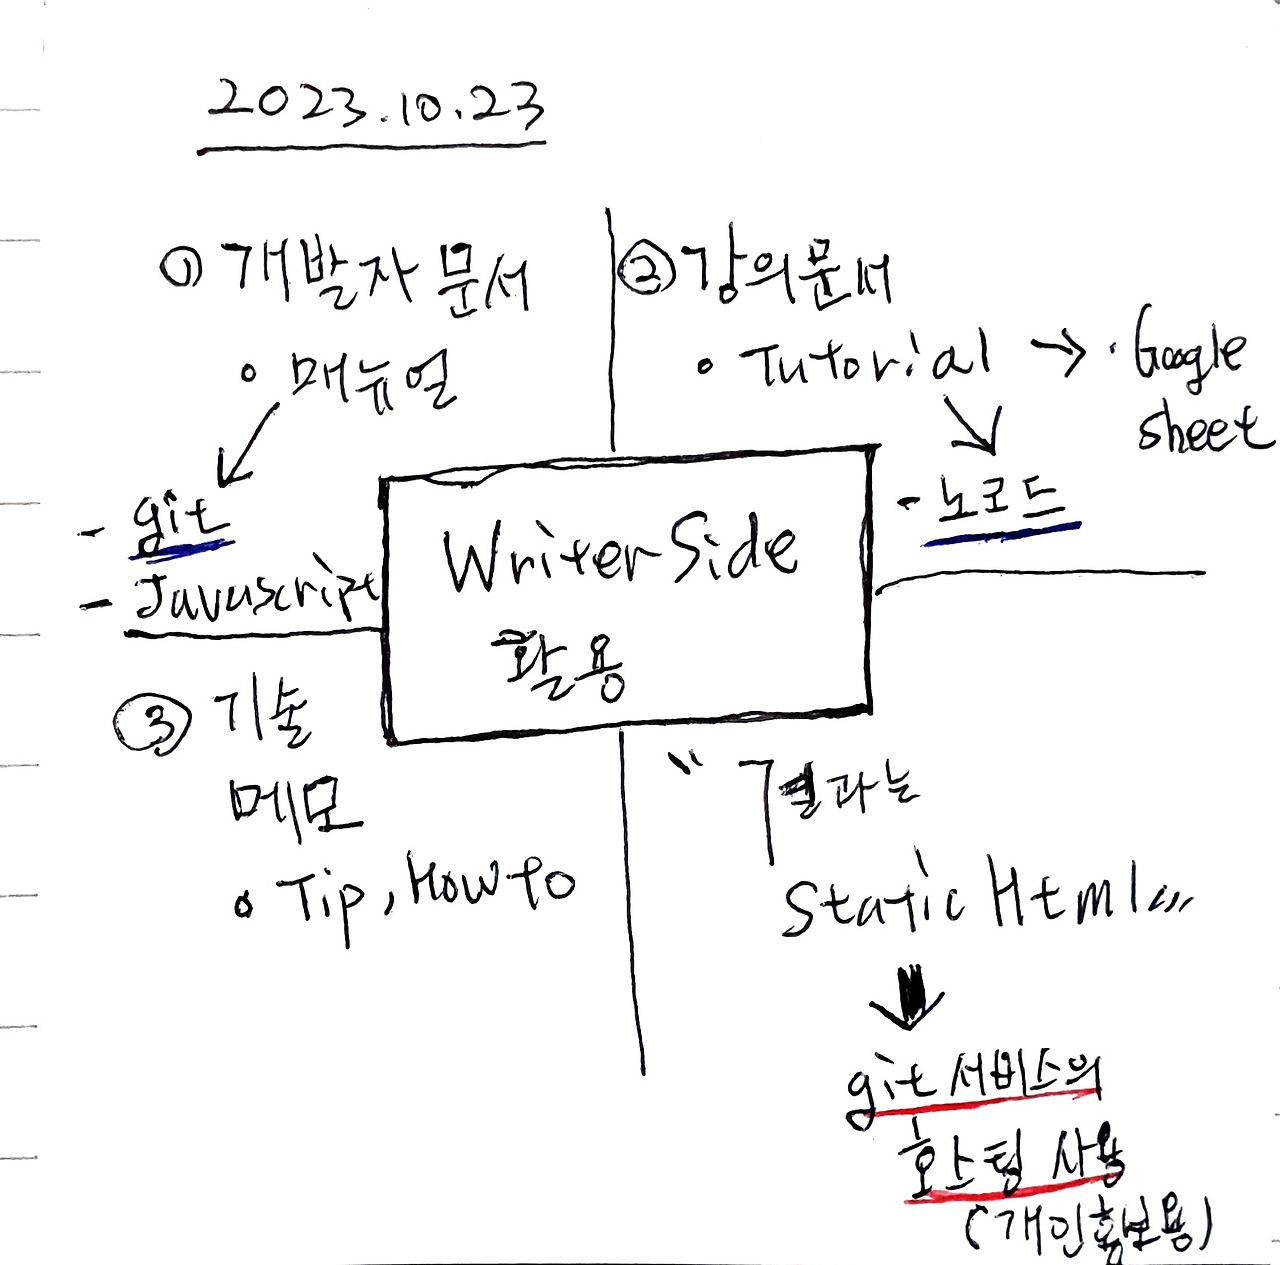 2023.10.23
① 개발자 문서
• 매뉴얼
- git
- Javascript
② 강의문서
• Tutorial → · Google
sheet
- 노코드
WriterSide
활용
③ 기술
메모
• Tip, How to
" 결과는
Static Html...
git 서비스의
호스팅 사용
(개인홍보용)